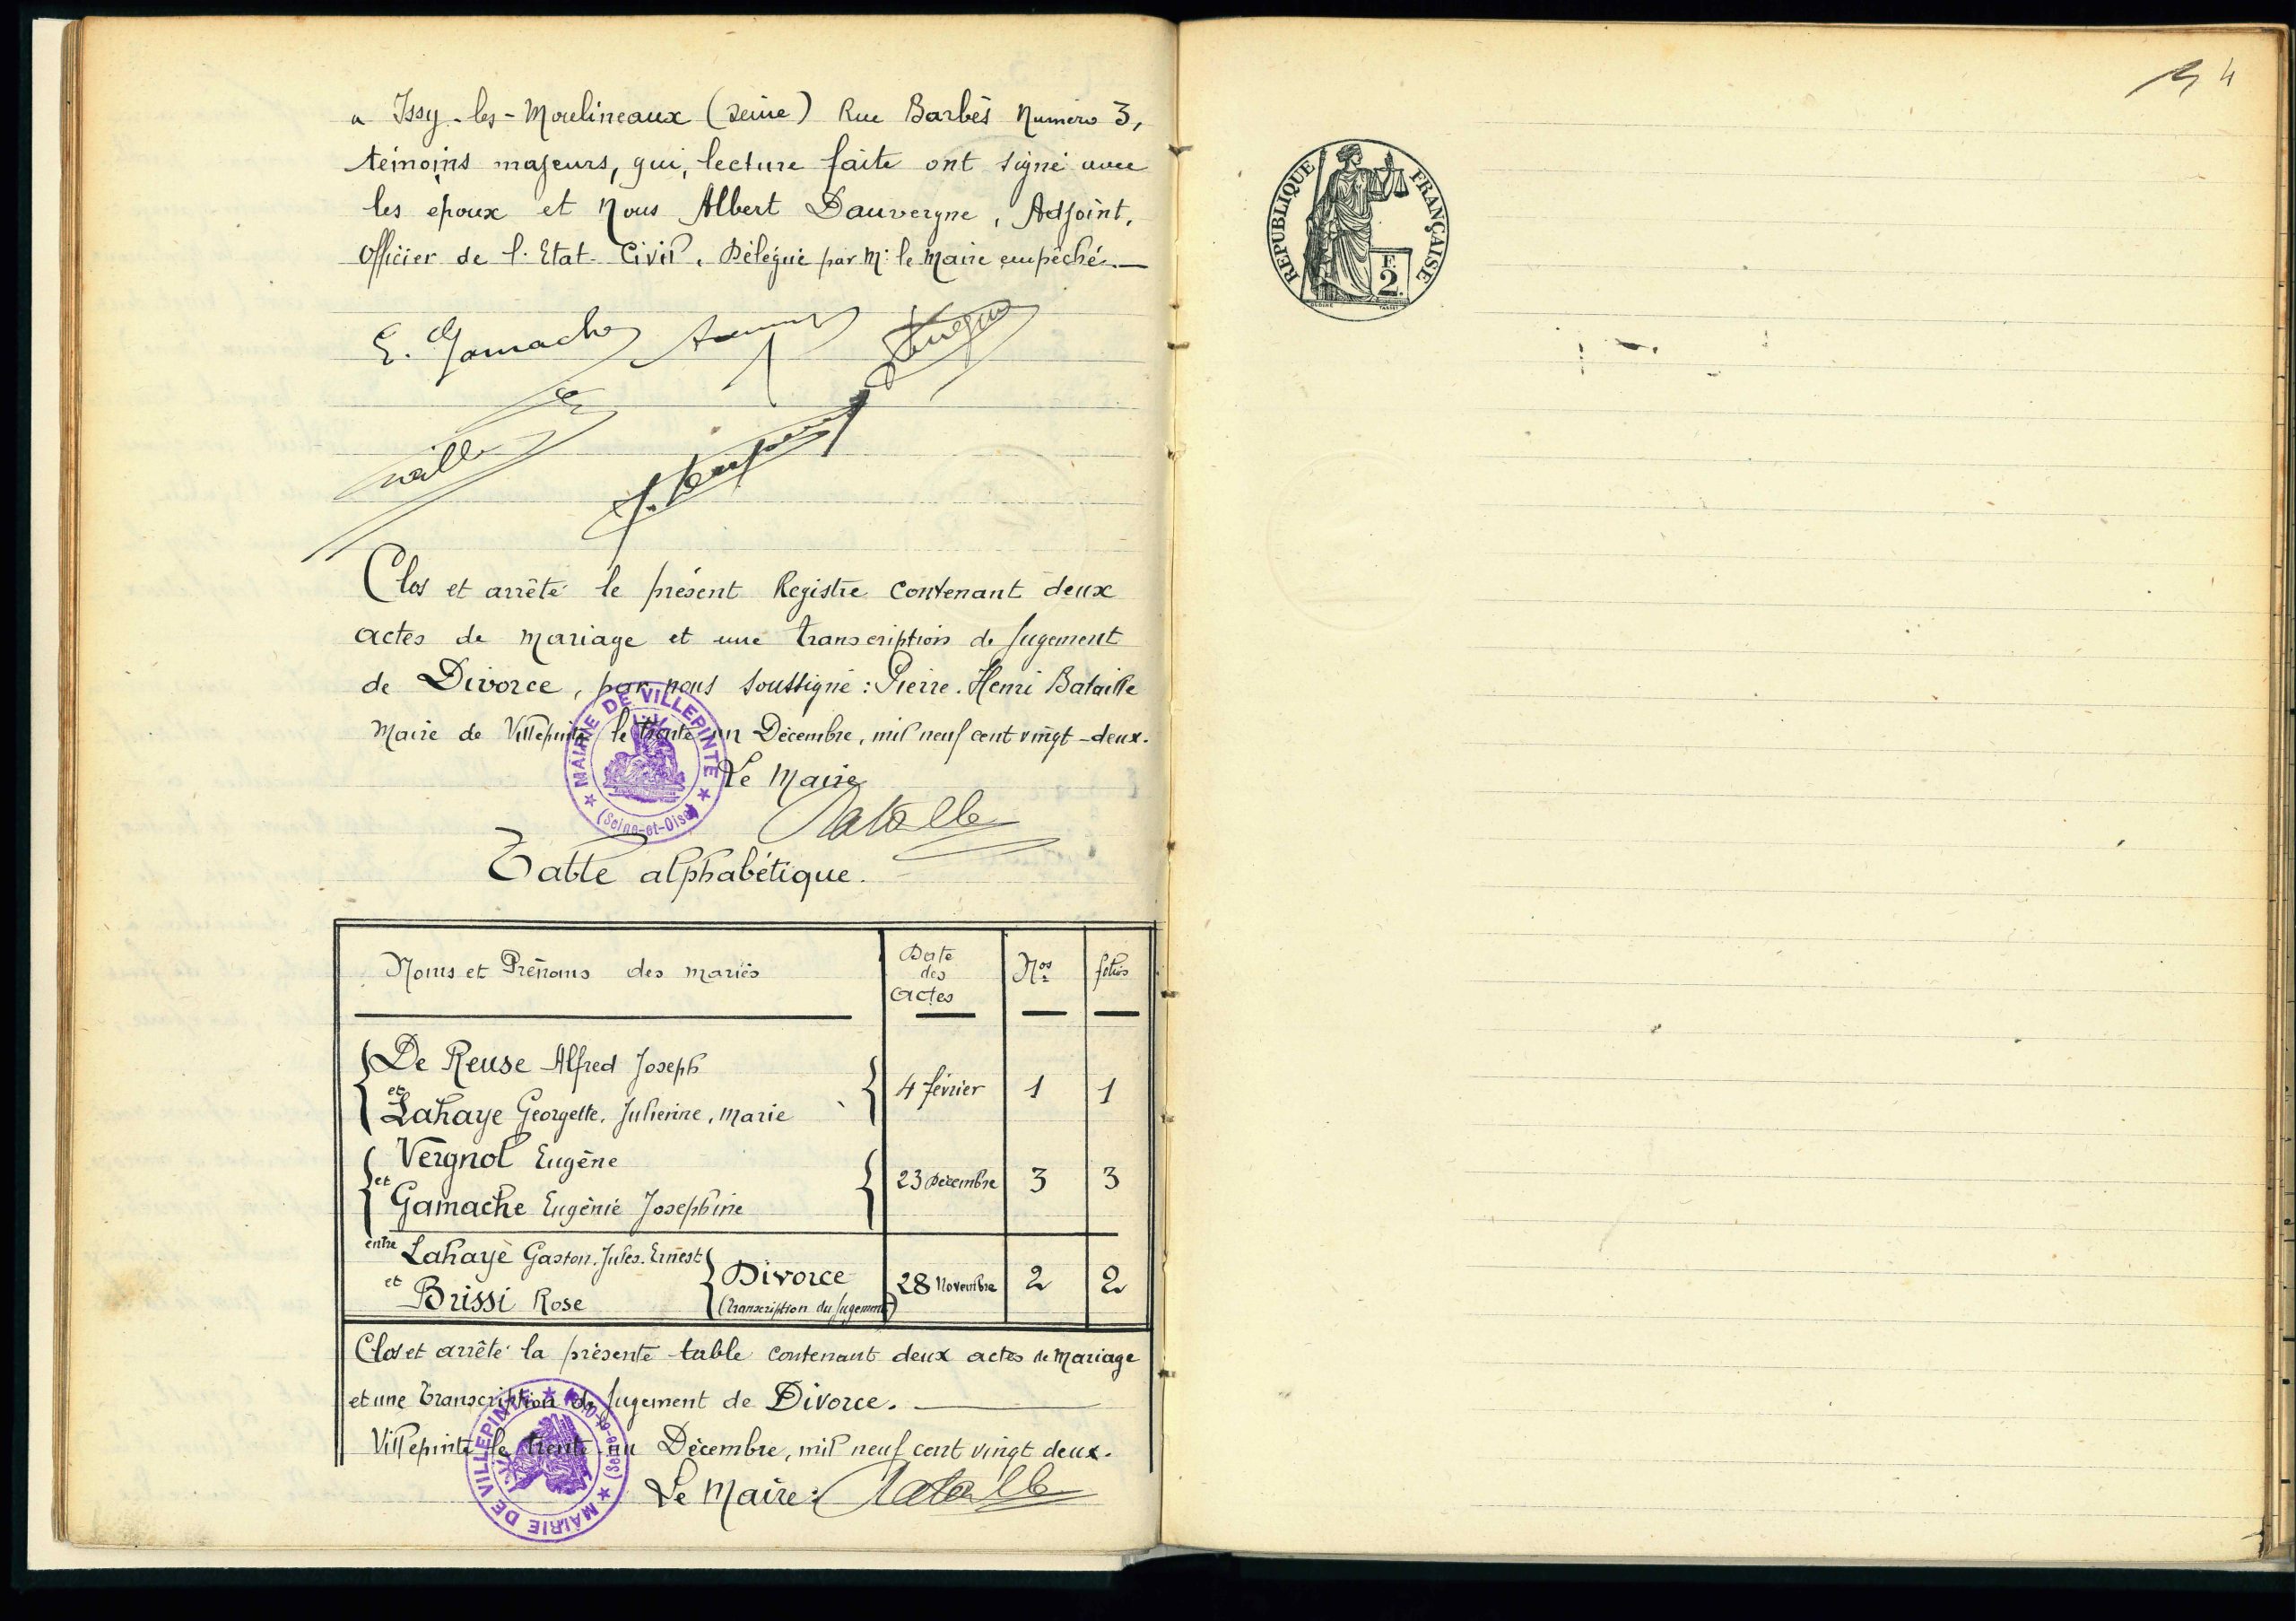 à Issy-les-Moulineaux (Seine) Rue Barbès Numéro 3,
témoins majeurs, qui, lecture faite ont signé avec
les époux et Nous Albert Dauvergne, Adjoint,
Officier de l'Etat-Civil, Délégué par Mr le Maire empêché.—
E. Gamache
Clos et arrêté le présent Registre contenant deux
actes de mariage et une transcription de Jugement
de Divorce, par nous soussigné : Pierre-Henri Bataille
Maire de Villepinte le trente un Décembre, mil neuf cent vingt-deux.
MAIRIE DE VILLEPINTE
(Seine-et-Oise)
Le Maire
Bataille
Table alphabétique.
Noms et Prénoms des mariés
Date des Actes
Nos
folios
De Reuse Alfred Joseph
et
Lahaye Georgette, Julienne, Marie
4 février 1 1
Vergnol Eugène
et
Gamache Eugénie Joséphine
23 Décembre 3 3
entre Lahaye Gaston, Jules, Ernest
et
Brissi Rose
Divorce
(transcription du Jugement)
28 Novembre 2 2
Clos et arrêté la présente table contenant deux actes de Mariage
et une transcription de Jugement de Divorce.
Villepinte le trente-un Décembre, mil neuf cent vingt deux.
MAIRIE DE VILLEPINTE
(Seine-et-Oise)
Le Maire : Bataille
4
RÉPUBLIQUE FRANÇAISE
F.
2.